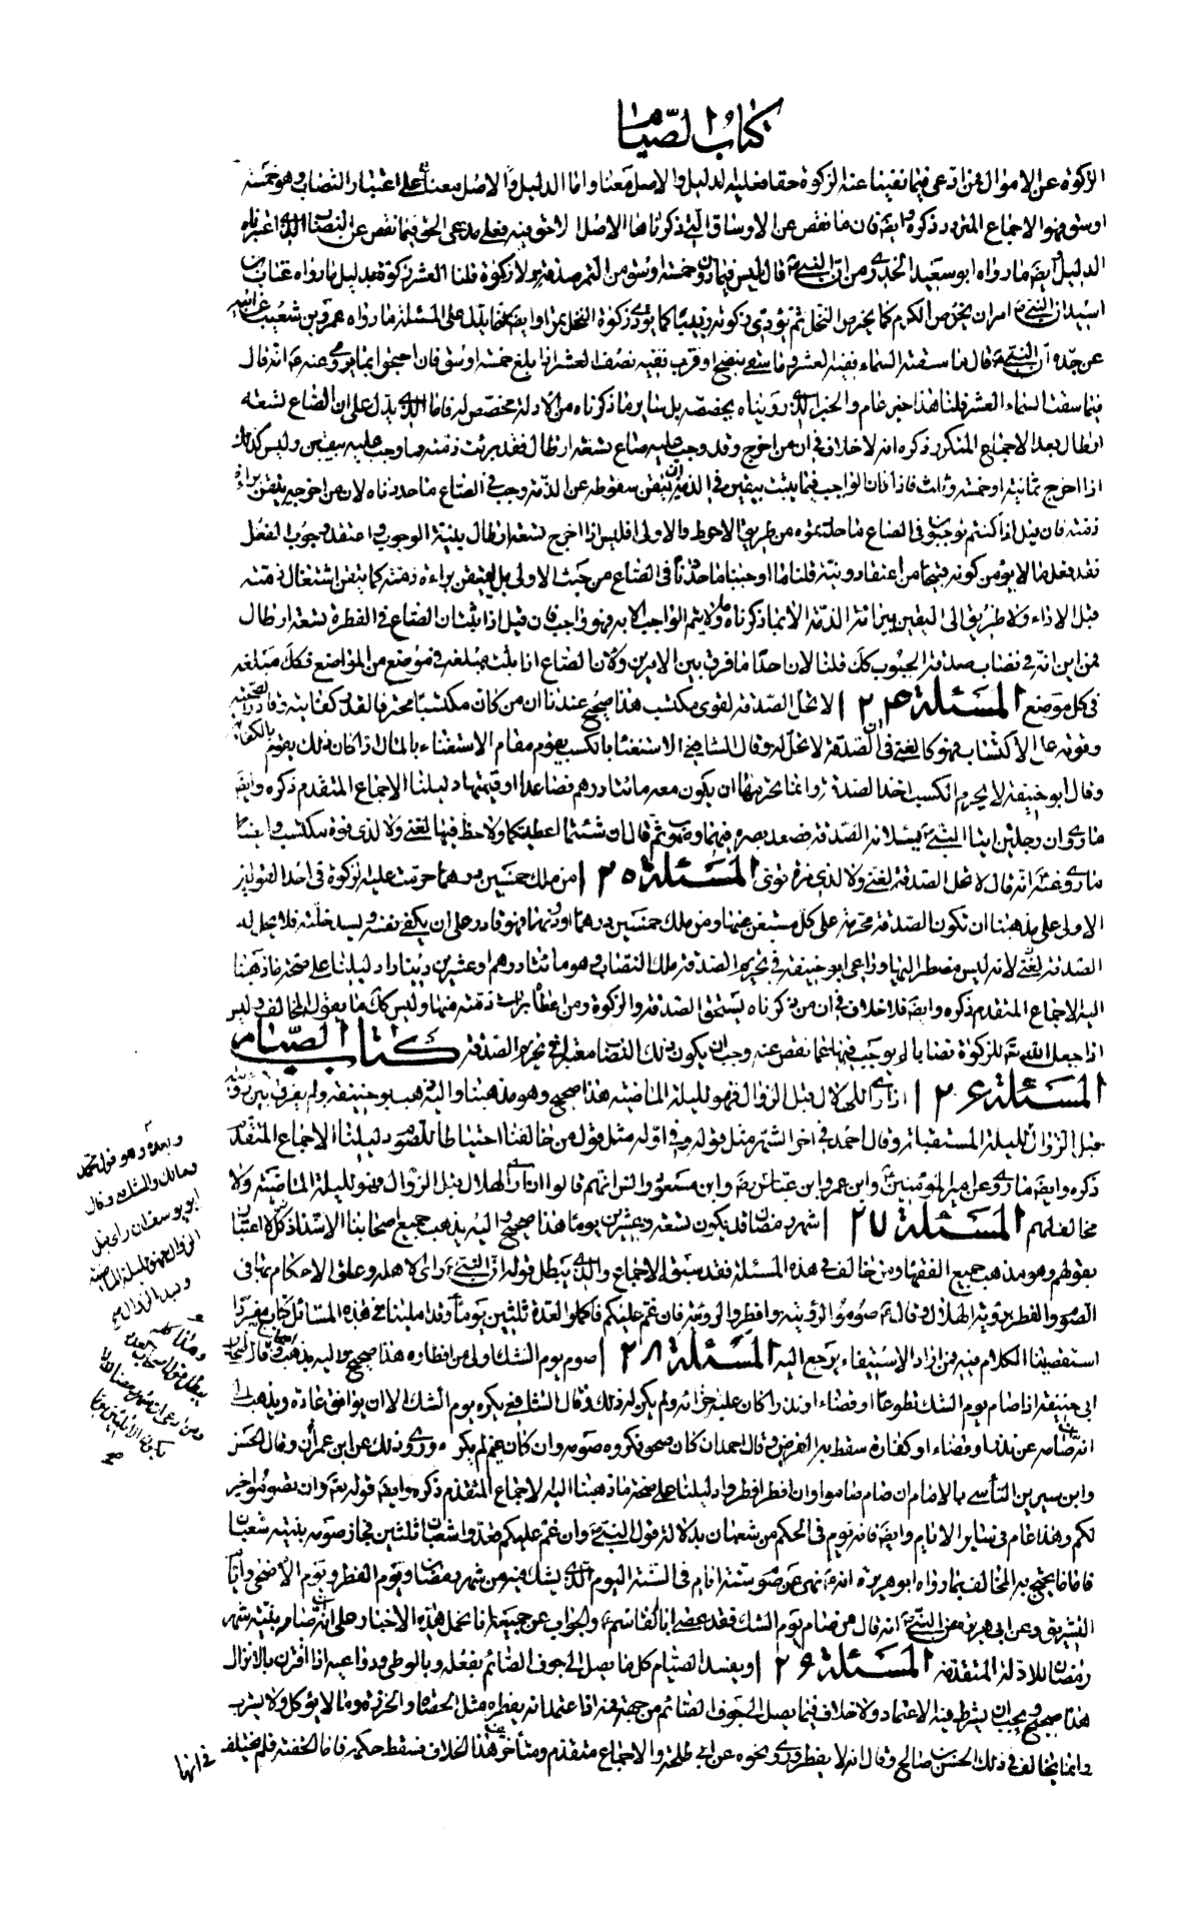 كتاب الصيام
الزكوة عن الاموال فمن ادعى فيما نفينا عنه الزكوة حقا فعليه الدليل والاصل معنا واما الدليل والاصل معنا على اعتبار النصاب وهو خمسة
اوسق فهو الاجماع المتردد ذكره وايضا فان ما نقص عن الاوساق التي ذكرناها الاصل لا حق فيه فعلى مدعى الحق فيما نقص عن النصاب الذي اعتبرناه
الدليل وايضا ما رواه ابو سعيد الخدري من ان النبي قال ليس فيما دون خمسة اوسق من التمر صدقة ولا زكوة قلنا العشر زكوة بدليل ما رواه عتاب بن
اسيد ان النبي امر ان يخرص الكرم كما يخرص النخل ثم يؤدي زكوته زبيبا كما يؤدي زكوة النخل تمرا وايضا مما يدل على المسئلة ما رواه عمرو بن شعيب عن ابيه
عن جده ان النبي قال ما سقته السماء ففيه العشر وما سقي بنضح او غرب ففيه نصف العشر اذا بلغ خمسة اوسق فان احتجوا بما روي عنه انه قال
فيما سقت السماء العشر قلنا هذا خبر عام والخبر الذي رويناه يخصصه بل سائر ما ذكرناه من الادلة مخصص له فاما الذي يدل على ان الصاع تسعة
ارطال بعد الاجماع المتكرر ذكره انه لا خلاف في ان من اخرج وقد وجب عليه صاع تسعة ارطال فقد برئت ذمته مما وجب عليه بيقين وليس كذلك
اذا اخرج ثمانية او خمسة وثلث فاذا كان الواجب فيما يثبت بيقين في الذمة ان يتيقن سقوطه عن الذمة وجب في الصاع ما حددناه لان من اخرجه يتيقن براءة
ذمته فان قيل اذا كنتم توجبون في الصاع ما حددتموه من طريق الاحوط والاولى افليس اذا اخرج تسعة ارطال بنية الوجوب واعتقد وجوب الفعل
فقد فعل ما لا يؤمن كونه قبيحا من اعتقاد ونية قلنا ما اوجبنا ما حددناه في الصاع من حيث الاولى بل ليتيقن براءة ذمته كما يتيقن اشتغال ذمته
قبل الاداء ولا طريق الى اليقين ببراءة الذمة الا بما ذكرناه وما لا يتم الواجب الا به فهو واجب فان قيل اذا ثبت ان الصاع في الفطرة تسعة ارطال
فمن اين انه في نصاب صدقة الحبوب كك قلنا لان احدا ما فرق بين الامرين ولان الصاع اذا ثبت مبلغه في موضع من المواضع فكل مبلغه
في كل موضع المسئلة ١٢٤ لا تحل الصدقة لقوي مكتسب هذا صحيح عندنا ان من كان مكتسبا محترفا لقدر كفايته وقادرا لصحته
وقوته على الاكتساب فهو كالغني في ان الصدقة لا تحل له وقال الشافعي الاستغناء بالكسب يقوم مقام الاستغناء بالمال اذا كان ذلك يقوم بالكفاية
وقال ابو حنيفة لا يحرم الكسب اخذ الصدقة وانما يحرمها ان يكون معه مائتا درهم فصاعدا او قيمتها دليلنا الاجماع المتقدم ذكره وايضا
ما روي ان رجلين اتيا النبي يسئلانه الصدقة فصعد بصره فيهما وصوبه ثم قال ان شئتما اعطيتكما ولا حظ فيها لغني ولا لذي قوة مكتسب وايضا
ما روي عنه انه قال لا تحل الصدقة لغني ولا لذي مرة سوى المسئلة ١٢٥ من ملك خمسين درهما حرمت عليه الزكوة في احد القولين
الاولى على مذهبنا ان تكون الصدقة محرمة على كل مستغن عنها ومن ملك خمسين درهما او دونها وهو قادر على ان يكفي نفسه ويسد خلته فلا تحل له
الصدقة لغني لانه ليس مضطر اليها وراعى ابو حنيفة في تحريم الصدقة ملك النصاب وهو مائتا درهم او عشرين دينارا دليلنا على صحة ما ذهبنا
اليه الاجماع المتقدم ذكره وايضا فلا خلاف في ان من ذكرناه يستحق الصدقة والزكوة ومن اعطاها برئت ذمته منها وليس كك ما يقوله المخالف وليس
اذا جعل الله تعالى للزكوة نصابا لم يوجب فيها عما نقص عنه وجب ان يكون ذلك النصاب معتبرا في تحريم الصدقة كتاب الصيام
المسئلة ١٢٦ اذا رأى الهلال قبل الزوال فهو لليلة الماضية هذا صحيح وهو مذهبنا واليه ذهب ابو حنيفة ولم يفرق بين رؤيته
قبل الزوال لليلة المستقبلة وقال احمد في اخر الشهر مثل قوله وفي اوله مثل قول من خالفنا احتياطا للصوم دليلنا الاجماع المتقدم
ذكره وايضا ما روي عن امير المؤمنين وابن عمر وابن عباس وابن مسعود وانس انهم قالوا ان رأى الهلال قبل الزوال فهو لليلة الماضية ولا
مخالف لهم المسئلة ١٢٧ شهر رمضان قد يكون تسعة وعشرين يوما هذا صحيح واليه يذهب جميع اصحابنا الا شذاذ لا اعتبار
بقولهم وهو مذهب جميع الفقهاء ومن خالف في هذه المسئلة فقد سبقه الاجماع والذي يبطل قوله ان النبي راى الاهلة وعلق الاحكام بها في
الصوم والفطر برؤية الهلال وقال صوموا لرؤيته وافطروا لرؤيته فان غم عليكم فاكملوا العدة ثلثين يوما وقد املينا في هذه المسائل كتابا مفردا
استقصينا الكلام فيه فمن اراد الاستيفاء يرجع اليه المسئلة ١٢٨ صوم يوم الشك اولى من افطاره هذا صحيح واليه يذهب اصحابنا وقال
ابي حنيفة اذا صام يوم الشك تطوعا او قضاء او نذرا كان عليه جزاه ولم يكن له ذلك وقال الشافعي يكره يوم الشك الا ان يوافق عادة ويذهب الى
انه ان صامه عن نذر او قضاء او كفارة سقط به الفرض وقال احمد ان كان صحو فكروه صومه وان كان غيم لم يكره وروي ذلك عن ابن عمر وقال الحسن
وابن سيرين التأسي بالامام ان صام صاموا وان افطر افطروا دليلنا على صحة ما ذهبنا اليه الاجماع المتقدم ذكره وايضا قوله تعالى وان تصوموا خير
لكم وهذا عام في سائر الايام وايضا فانه يوم في الحكم من شعبان بدلالة قول النبي وان غم عليكم فعدوا شعبان ثلثين فجاز صومه بنية شعبان
فاما ما يحتج به المخالف بما رواه ابو هريرة انه نهى عن صوم ستة ايام في السنة اليوم الذي يشك فيه من شهر رمضان ويوم الفطر ويوم الاضحى وايام
التشريق وعن ابي هريرة عن النبي انه قال من صام يوم الشك فقد عصى ابا القاسم والجواب عن جميعه انا نحمل هذه الاخبار على انه صام بنية شهر
رمضان للادلة المتقدمة المسئلة ١٢٩ ويفسد الصيام كل ما يصل الى جوف الصائم بفعله وبالوطي ودواعيه اذا اقترن بالانزال
هذا صحيح ويجب ان يشترط فيه الاعتماد ولا خلاف فيما يصل الى جوف الصائم من جهة فمه اذا اعتمد انه يفطره مثل الحصاة والخرزة وما لا يؤكل ولا يشرب
وانما يخالف في ذلك الحسن بن صالح وقال انه لا يفطر وروي نحوه عن ابي طلحة والاجماع متقدم ومتأخر عن هذا الخلاف فسقط حكمه فاما الحقنة فلم يختلف
في انها
وبعده وهو قول محمد
ومالك والشافعي وقال
ابو يوسف ان راى قبل
الزوال فهو لليلة الماضية
وبعد الزوال